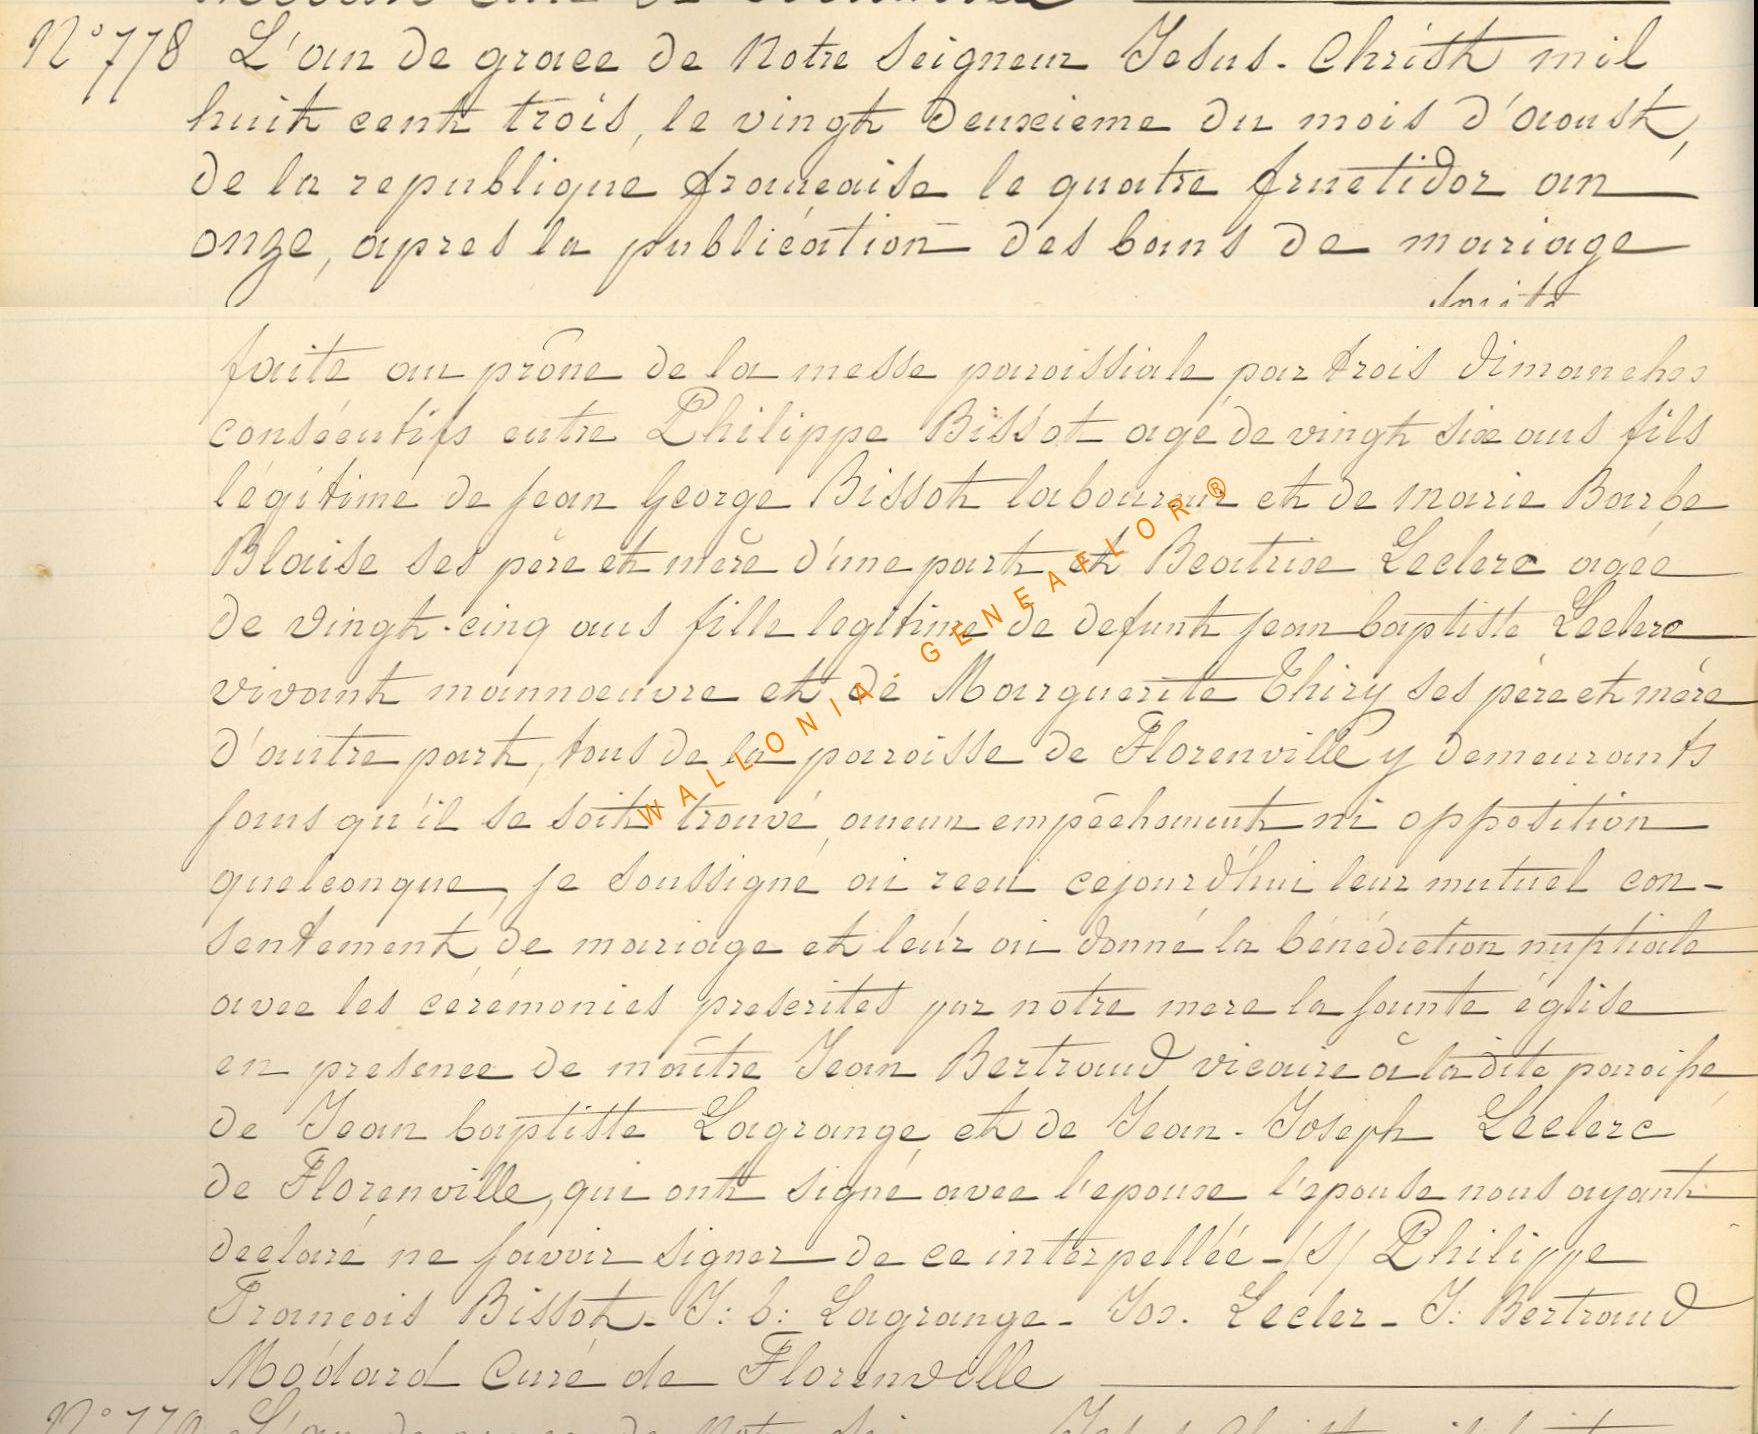 N° 778 L'an de grace de Notre Seigneur Jesus-Christ mil
huit cent trois, le vingt deuxieme du mois d'aoust,
de la republique française le quatre fructidor an
onze, apres la publication des bans de mariage
faite
faite au prône de la messe paroissiale par trois dimanches
consécutifs entre Philippe Bissot agé de vingt six ans fils
légitime de Jean George Bissot laboureur et de Marie Barbe
Blaise ses père et mère d'une part et Beatrixe Leclerc agée
de vingt-cinq ans fille legitime de defunt Jean baptiste Leclerc
vivant mannoeuvre et de Marguerite Thiry ses père et mère
d'autre part, tous de la paroisse de Florenville y demeurants
sans qu'il se soit trouvé aucun empêchement ni opposition
quelconque, je soussigné ai recu cejourd'hui leur mutuel con-
sentement de mariage et leur ai donné la bénédiction nuptiale
avec les cérémonies prescrites par notre mere la sainte église
en presence de maître Jean Bertrand vicaire à la dite paroisse
de Jean baptiste Lagrange et de Jean-Joseph Leclerc
de Florenville, qui ont signé avec l'epoux l'epouse nous ayant
declaré ne savoir signer de ce interpellée - /S/ Philippe
François Bissot - J: b: Lagrange - Jos. Lecler - J: Bertrand
Modard Curé de Florenville
WALLONIA - GENEAFLOR ®